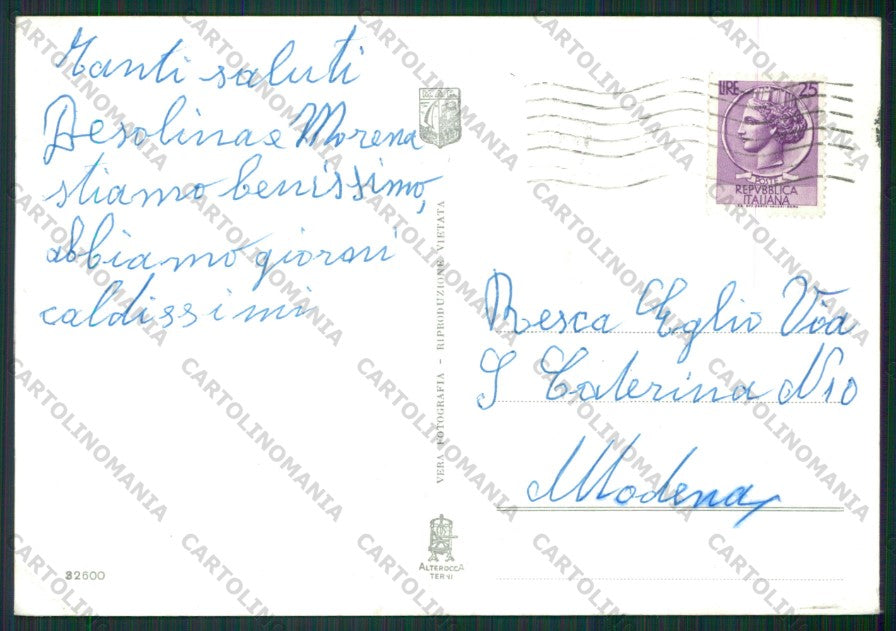 Tanti saluti
Desolina e Morena
stiamo benissimo,
abbiamo giorni
caldissimi
LIRE 25
POSTE
REPVBBLICA
ITALIANA
VERA FOTOGRAFIA - RIPRODUZIONE VIETATA
Resca Eglio Via
S Caterina N10
Modena
ALTEROCCA
TERNI
32600
CARTOLINOMANIA